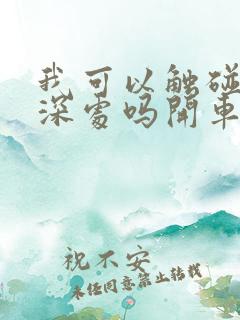 我可以触碰
深處吗開車
祝不安
未经同意禁止转载